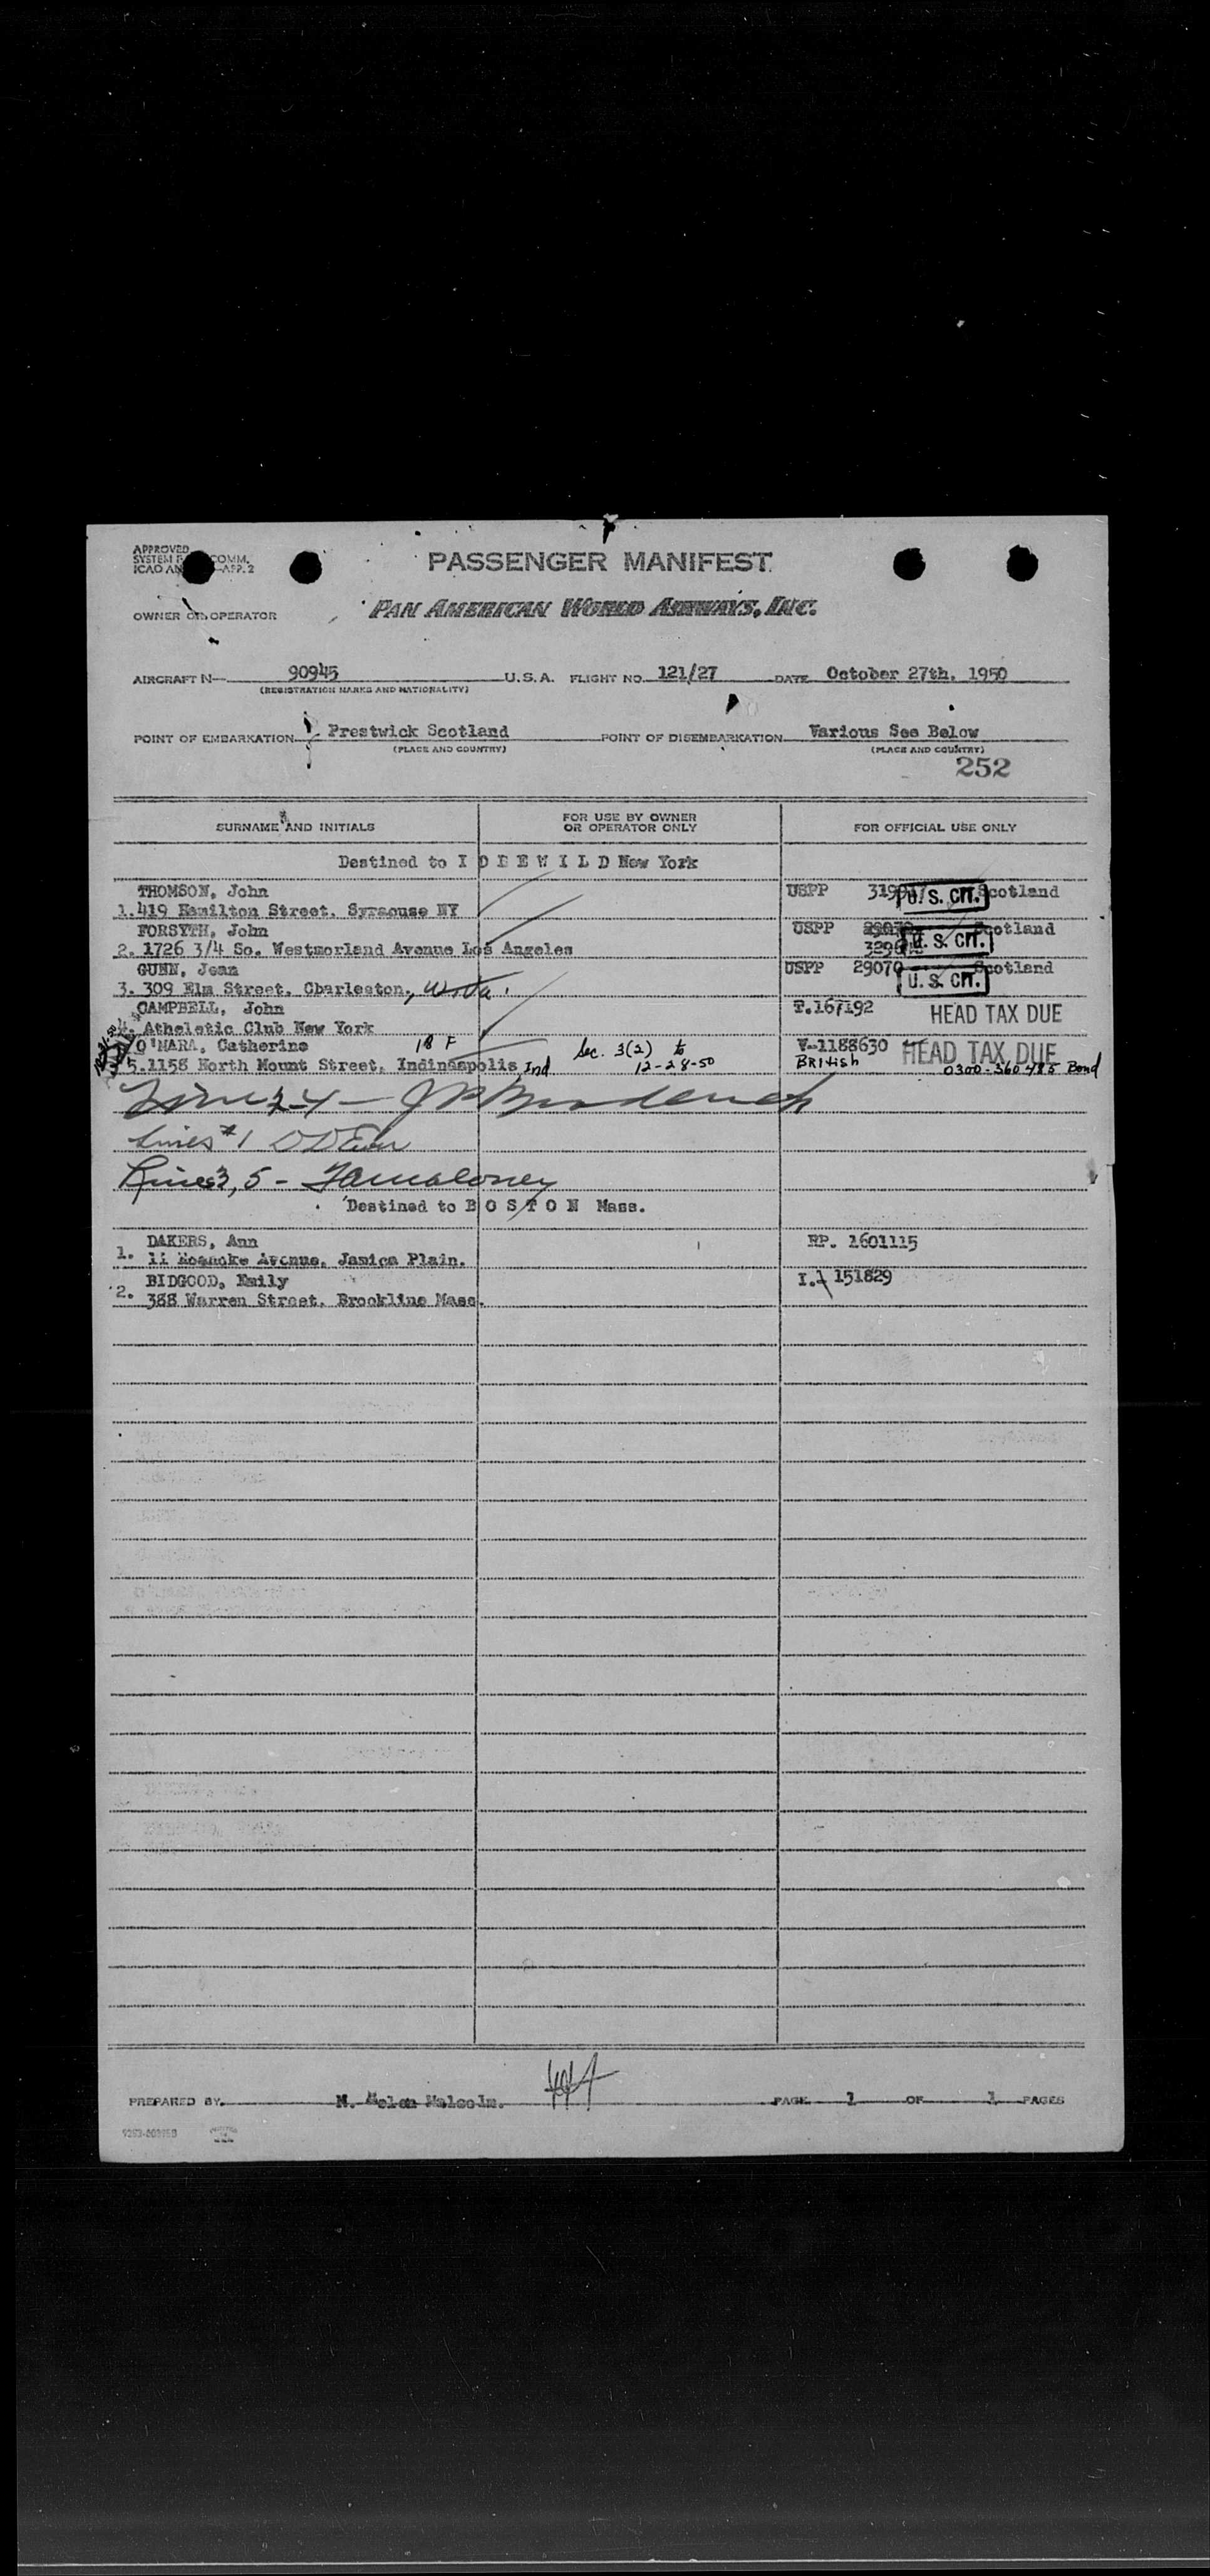 APPROVED
SYSTEM COMM.
ICAO AN -APP. 2
PASSENGER MANIFEST
OWNER OR OPERATOR
PAN AMERICAN WORLD AIRWAYS, INC.
AIRCRAFT N 90945 U.S.A. FLIGHT NO. 121/27 DATE October 27th. 1950
(REGISTRATION MARKS AND NATIONALITY)
POINT OF EMBARKATION Prestwick Scotland POINT OF DISEMBARKATION Various See Below
(PLACE AND COUNTRY) (PLACE AND COUNTRY)
252
SURNAME AND INITIALS FOR USE BY OWNER OR OPERATOR ONLY FOR OFFICIAL USE ONLY
Destined to I D L E W I L D New York
THOMSON, John USPP U.S. CIT. Scotland
1. 419 Hamilton Street. Syracuse NY
FORSYTH, John USPP 29070 Scotland
2. 1726 3/4 So. Westmorland Avenue Los Angeles U.S. CIT.
GUNN, Jean USPP 29070 Scotland
3. 309 Elm Street. Charleston, W. Va. U.S. CIT.
CAMPBELL, John T.167192 HEAD TAX DUE
4. Atheletic Club New York
O'MARA, Catherine 18 F Sec. 3(2) to V-1188630 HEAD TAX DUE
5. 1158 North Mount Street, Indinaapolis Ind 12-28-50 British 0300-360485 Bond
Lines #1
Lines 3, 5 - Maloney
Destined to B O S T O N Mass.
DAKERS, Ann RP. 1601115
1. 11 Roanoke Avenue. Jamica Plain.
BIDGOOD, Emily I. 151829
2. 388 Warren Street. Brookline Mass.
PREPARED BY. M. Helen Malcolm. PAGE 1 OF 1 PAGES